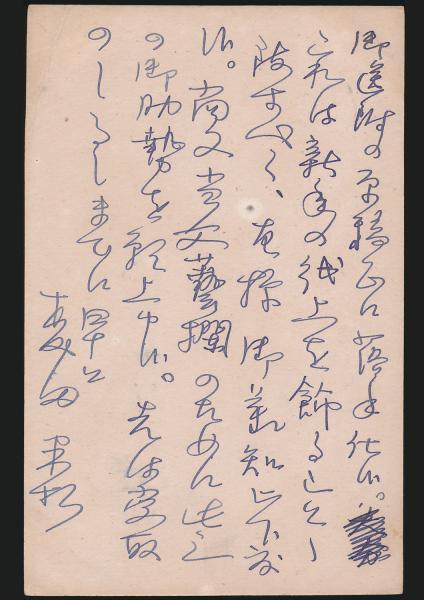 御送附の原稿正に落手仕候。
これは新年の紙上を飾ることゝ
致すべく、左様御羞知被下度
候。尚又当文藝欄のため此上
の御助勢を願上申候。先は受取
のしるしまでに 早々